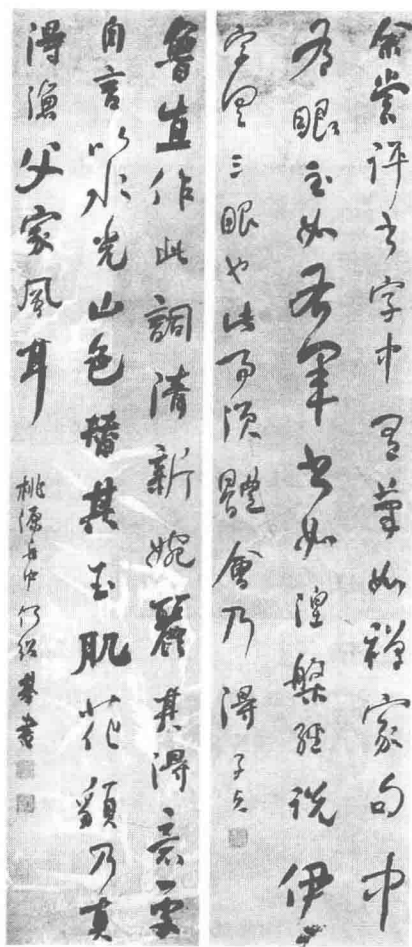 余嘗評書字中有筆如禪家句中
有眼至如右軍書如涅槃經說伊
字具三眼也此事須體會乃得 子貞
魯直作此詞清新婉麗其得意處
自言以水光山色替其玉肌花貌乃真
得漁父家風耳 桃源舟中何紹基書